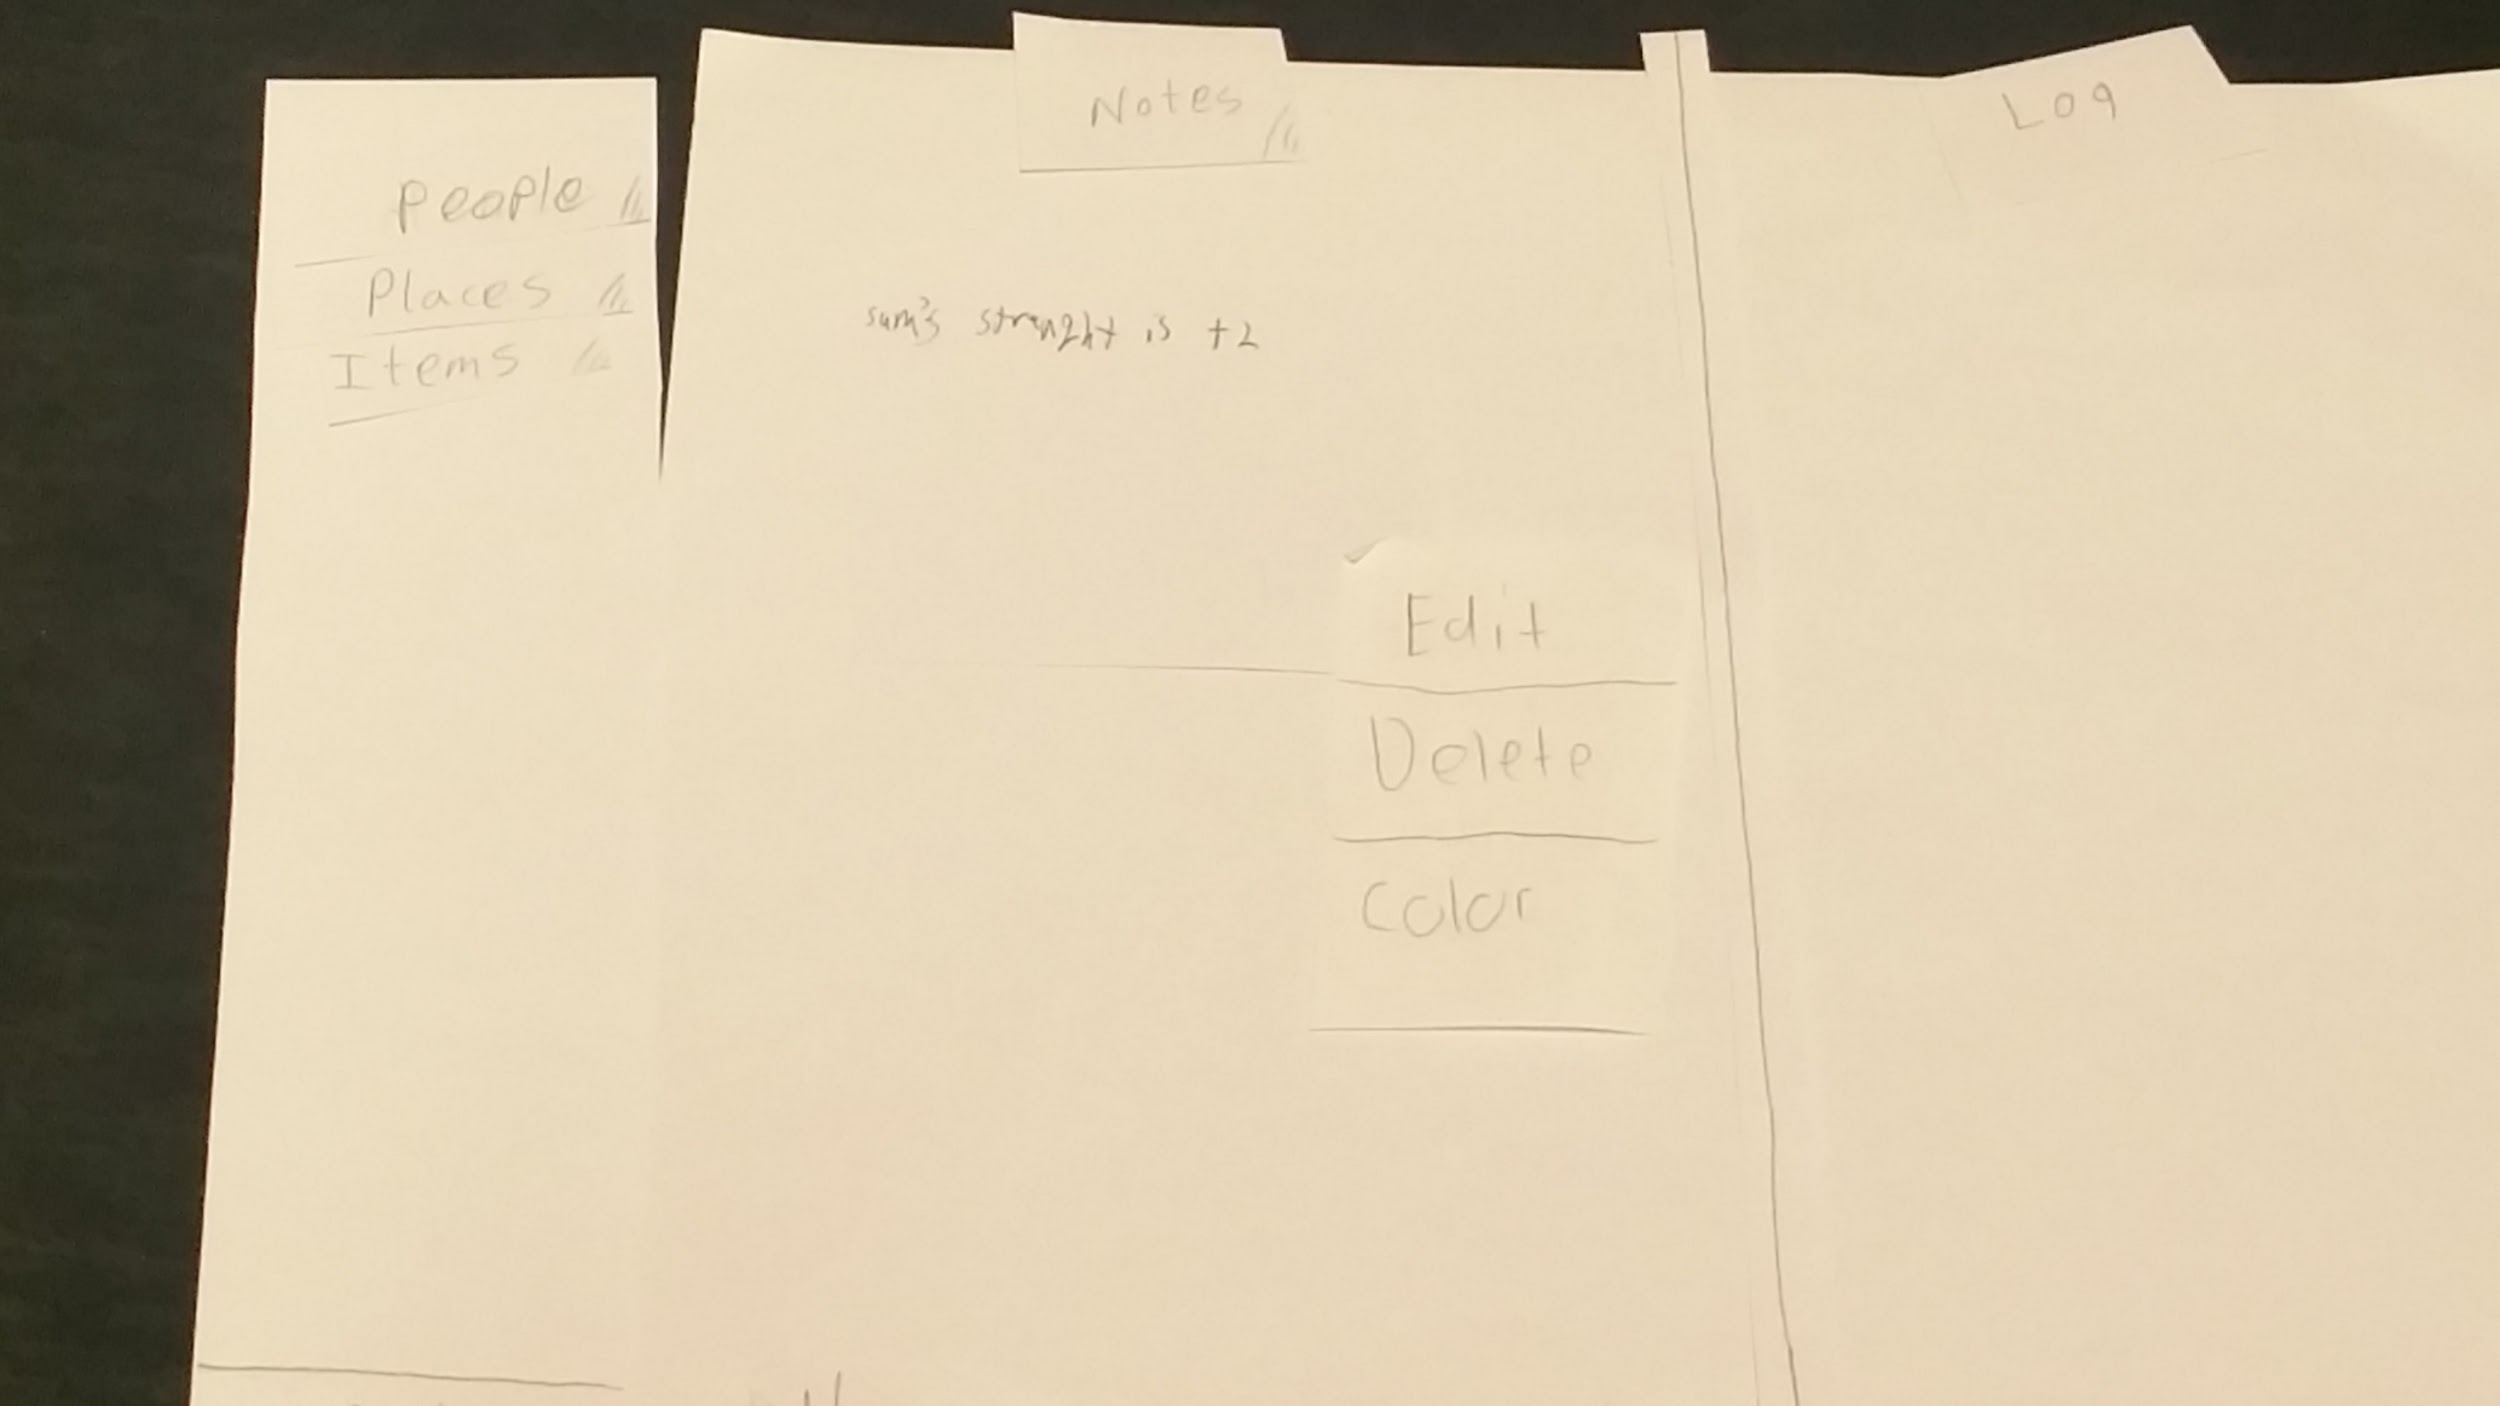 People
Places
Items
Notes
sam's strenght is +2
Edit
Delete
Color
Log